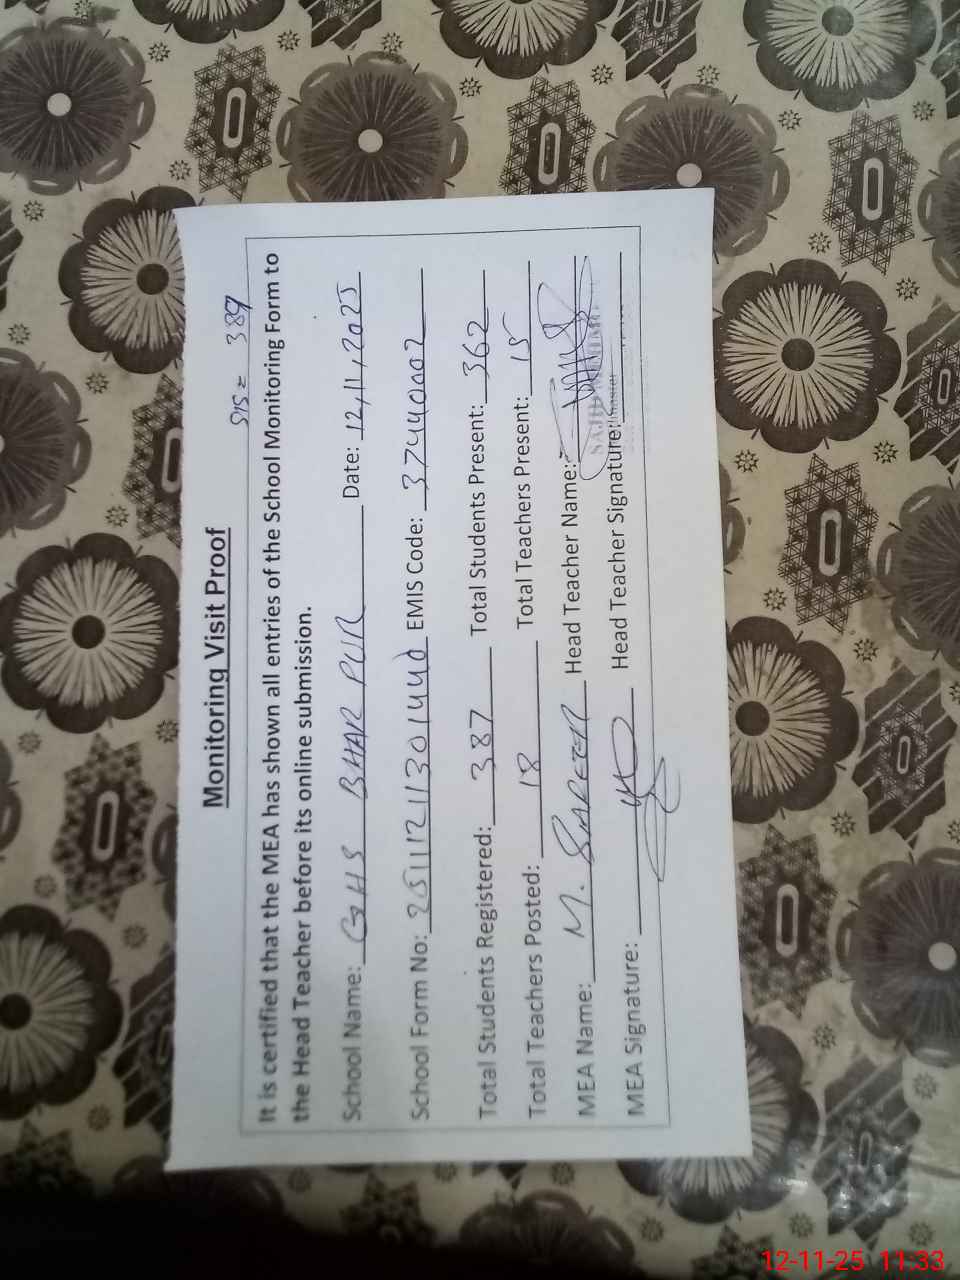 Monitoring Visit Proof
SIS = 389
It is certified that the MEA has shown all entries of the School Monitoring Form to
the Head Teacher before its online submission.
School Name: GHS BHAR PUR Date: 12,11,2025
School Form No: EMIS Code: 37440002
Total Students Registered: 387 Total Students Present: 362
Total Teachers Posted: 18 Total Teachers Present: 15
MEA Name: M. Head Teacher Name:
MEA Signature: Head Teacher Signature:
12-11-25 11:33